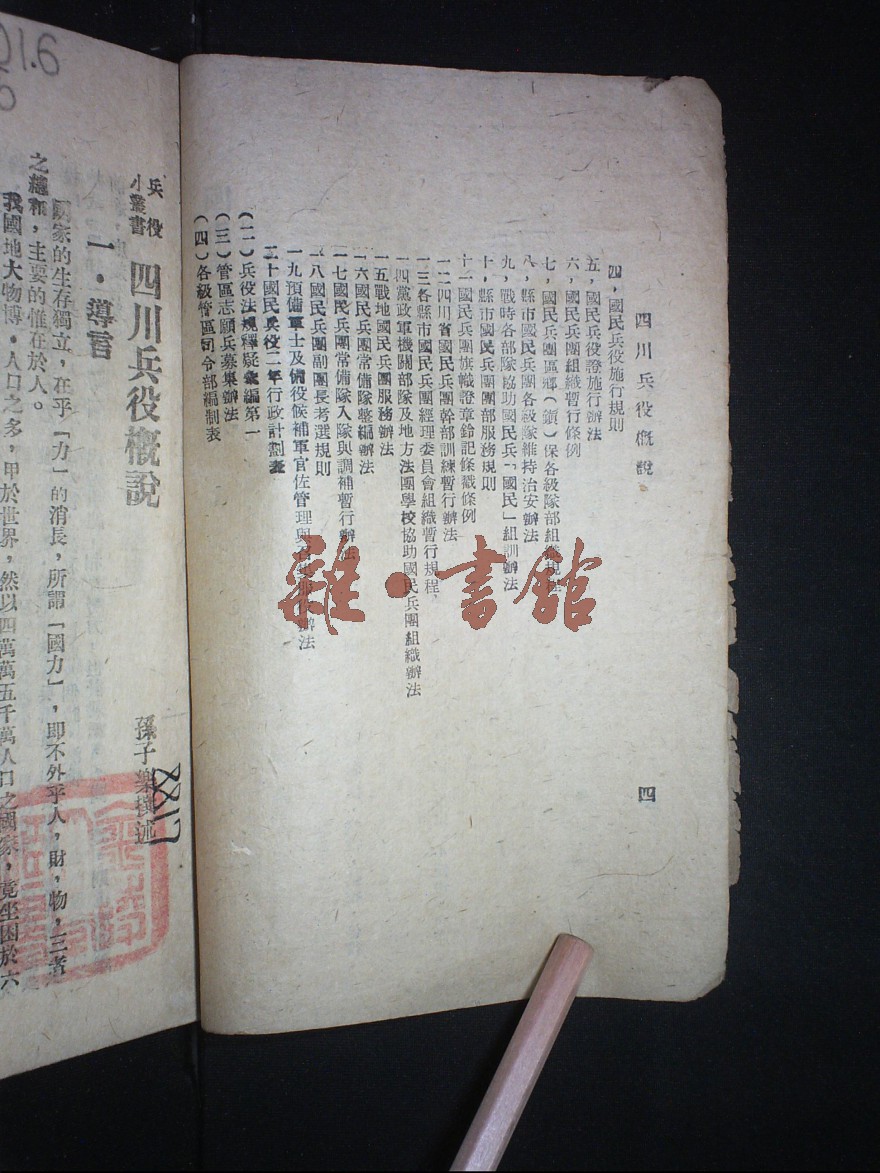 四川兵役概說
四
四，國民兵役施行規則
五，國民兵役證施行辦法
六，國民兵團組織暫行條例
七，國民兵團區鄉（鎮）保各級隊部組織規程
八，縣市國民兵團各級隊維持治安辦法
九，戰時各部隊協助國民兵「國民」組訓辦法
十，縣市國民兵團團部服務規則
十一國民兵團旗幟證章鈴記條戳條例
一二四川省國民兵團幹部訓練暫行辦法
一三各縣市國民兵團經理委員會組織暫行規程，
一四黨政軍機關部隊及地方法團學校協助國民兵團組織辦法
一五戰地國民兵團服務辦法
一六國民兵團常備隊整編辦法
一七國民兵團常備隊入隊與調補暫行辦法
一八國民兵團副團長考選規則
一九預備軍士及備役候補軍官佐管理與召辦法
二十國民兵役二年行政計劃表
（二）兵役法規釋疑彙編第一
（三）管區志願兵募集辦法
（四）各級管區司令部編制表
雜·書館
兵役
小叢書
四川兵役概說
孫子樂撰述
8817
一·導言
國家的生存獨立，在乎「力」的消長，所謂「國力」，即不外乎人，財，物，三者
之總和，主要的惟在於人。
我國地大物博，人口之多，甲於世界，然以四萬萬五千萬人口之國家，竟坐困於六
Q1.6
0